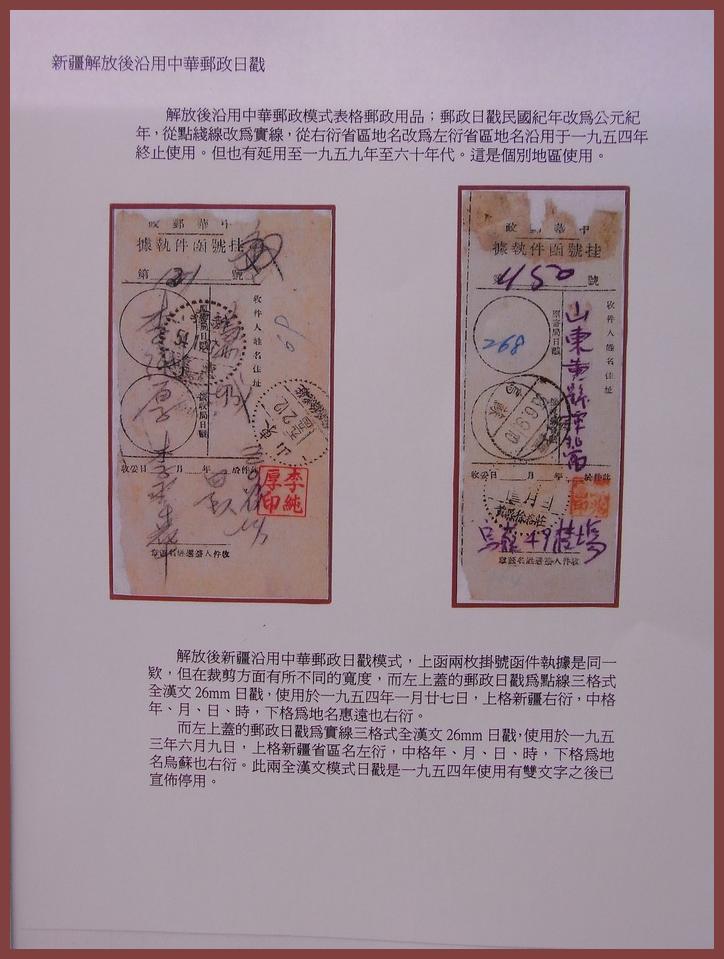 新疆解放後沿用中華郵政日戳
解放後沿用中華郵政模式表格郵政用品；郵政日戳民國紀年改爲公元紀
年，從點綫線改爲實線，從右衍省區地名改爲左衍省區地名沿用于一九五四年
終止使用。但也有延用至一九五九年至六十年代。這是個別地區使用。
政郵華中
據執件函號挂
第
號
收件人姓名住址
收件人簽選姓名蓋章
山東
李純
厚印
政郵華中
據執件函號挂
4150
號
268
收件人姓名住址
山東黃縣
黃縣徐裕莊
烏蘇49
收件人簽選姓名蓋章
解放後新疆沿用中華郵政日戳模式，上函兩枚掛號函件執據是同一
欵，但在裁剪方面有所不同的寬度，而左上蓋的郵政日戳爲點線三格式
全漢文26mm日戳，使用於一九五四年一月廿七日，上格新疆右衍，中格
年、月、日、時，下格爲地名惠遠也右衍。
而左上蓋的郵政日戳爲實線三格式全漢文26mm日戳，使用於一九五
三年六月九日，上格新疆省區名左衍，中格年、月、日、時，下格爲地
名烏蘇也右衍。此兩全漢文模式日戳是一九五四年使用有雙文字之後已
宣佈停用。